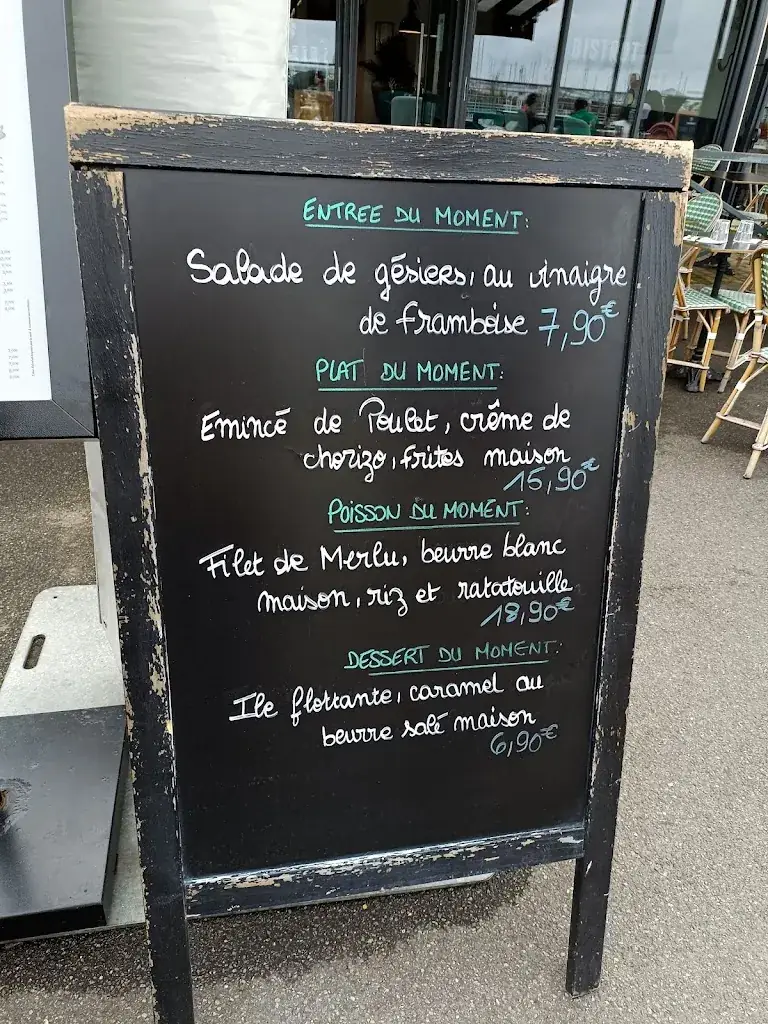 ENTREE DU MOMENT:
Salade de gésiers, au vinaigre
de framboise 7,90€
PLAT DU MOMENT:
Emincé de Poulet, crême de
chorizo, frites maison
15,90€
POISSON DU MOMENT:
Filet de Merlu, beurre blanc
maison, riz et ratatouille
18,90€
DESSERT DU MOMENT:
Ile flottante, caramel au
beurre salé maison
6,90€